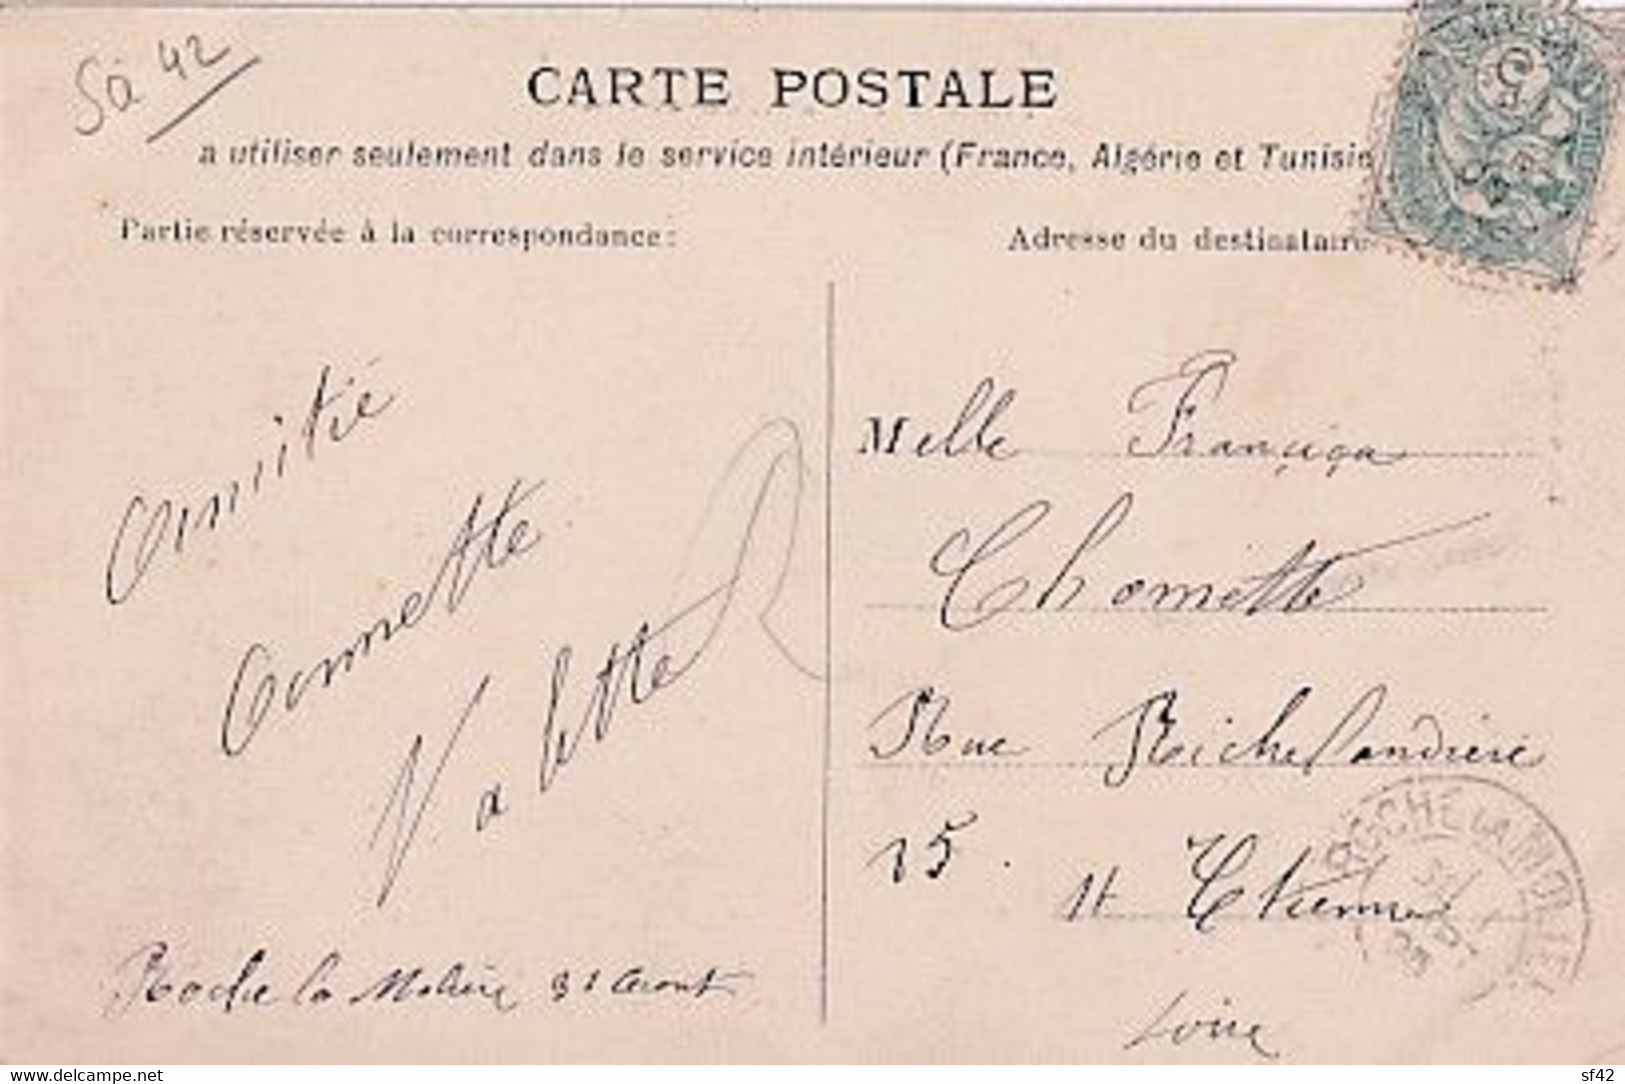 So 42
CARTE POSTALE
a utiliser seulement dans le service intérieur (France, Algérie et Tunisie
Partie réservée à la correspondance:
Adresse du destinataire
Amitié
Annette
Valette
Roche la Molière 31 Aout
Melle Françiça
Chomette
Rue Richelandière
15.
St Etienne
Loire
ROCHE LA MOLIE
www.delcampe.net
sf42